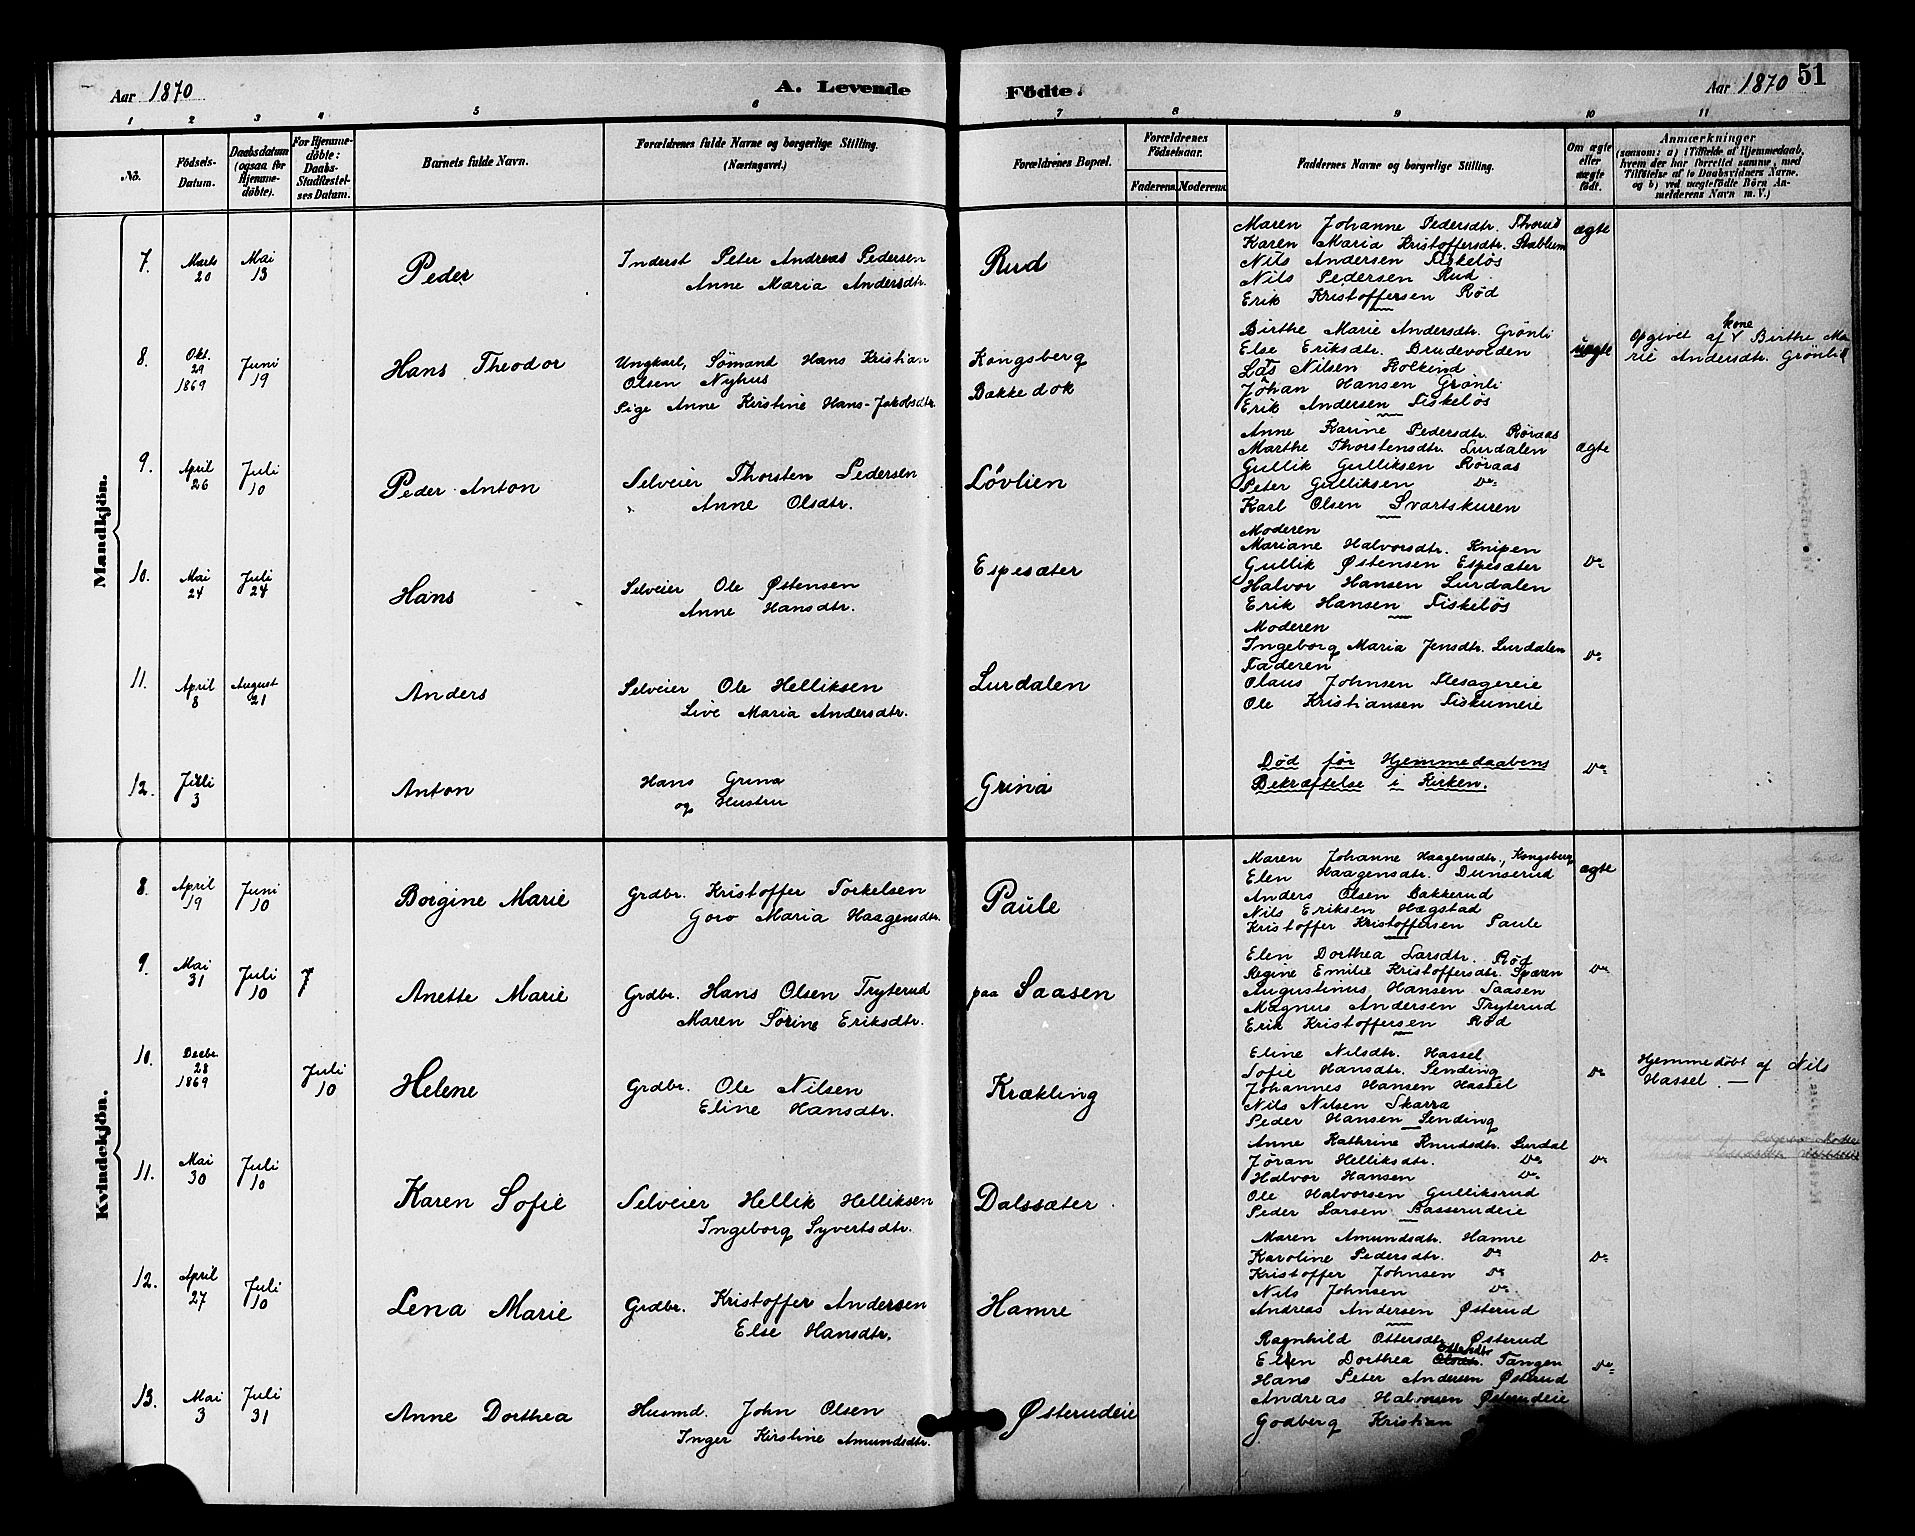 Aar 1870
A. Levende
Födte.
Aar 1870
51
1 2 3 4 5 6 7 8 9 10 11
No.
Födsels-
Datum.
Daabsdatum
(ogsaa för
Hjemme-
döbte).
For Hjemme-
döbte:
Daabs-
Stadfæstel-
ses Datum.
Barnets fulde Navn.
Forældrenes fulde Navne og borgerlige Stilling.
(Næringsvei.)
Forældrenes Bopæl.
Forældrenes
Födselsaar.
Faderens.
Moderens.
Faddernes Navne og borgerlige Stilling.
Om ægte
eller
uægte
født.
Anmærkninger
(saasom: a) i Tilfælde af Hjemmedaab,
hvem der har forrettet samme, med
Tilföielse af to Daabsvidners Navne,
og b) ved uægtefödte Börn An-
melderens Navn m. V.)
Mandkjön.
7.
Marts
20
Mai
13
Peder
Inderst Peter Andreas Pedersen
Anne Maria Andersdtr.
Rud
Maren Johanne Pedersdtr. Thorud
Karen Maria Kristoffersdtr. Stablum
Nils Andersen Fiskelös
Nils Pedersen Rud
Erik Kristoffersen Röd
ægte
8.
Okt.
29
1869
Juni
19
Hans Theodor
Ungkarl, Sømand Hans Kristian
Olsen Nyhus
Pige Anne Kirstine Hans-Jakobsdtr.
Kongsberg
Bakkedok
Birthe Marie Andersdtr. Grönli
Else Eriksdtr. Brudevolden
Lars Nilsen Kolkind
Johan Hansen Grönli
Erik Andersen Fiskeløs
uægte
Opgivet af Kone Birthe Ma
rie Andersdtr. Grönli
9.
April
26
Juli
10
Peder Anton
Selveier Thorsten Pedersen
Anne Olsdtr.
Lövlien
Anne Karine Pedersdtr. Röraas
Marthe Thorstensdtr. Lurdalen
Gullik Gulliksen Röraas
Peter Gulliksen Do
Karl Olsen Svartskuren
ægte
10.
Mai
24
Juli
24
Hans
Selveier Ole Østensen
Anne Hansdtr.
Espesæter
Moderen
Mariane Halvorsdtr. Knipen
Gullik Østensen Espesæter
Halvor Hansen Lurdalen
Erik Hansen Fiskelös
Do
11.
April
8
August
21
Anders
Selveier Ole Helliksen
Live Maria Andersdtr.
Lurdalen
Moderen
Ingeborg Maria Jensdtr. Lurdalen
Faderen
Olaus Johnsen Stesagereie
Ole Kristiansen Fiskumeie
Do
12.
Juli
3
Anton
Hans Grina
og Hustru
Grina
Död för Hjemmedaabens
Bekræftelse i Kirken.
Do
Kvindekjön.
8.
April
19
Juni
10
Borgine Marie
Grdbr. Kristoffer Torkelsen
Goro Maria Haagensdtr.
Paule
Maren Johanne Haagensdtr., Kongsberg
Elen Haagensdtr. Dunserud
Anders Olsen Bakkerud
Nils Eriksen Hægstad
Kristoffer Kristoffersen Paule
ægte
9.
Mai
31
Juli
10
7
Anette Marie
Grdbr. Hans Olsen Tryterud
Maren Sörine Eriksdtr.
paa Saasen
Elen Dorthea Larsdtr. Röd
Regine Emilie Kristoffersdtr. Spæren
Augustinus Hansen Saasen
Magnus Andersen Tryterud
Erik Kristoffersen Röd
Do
10.
Decbr.
28
1869
Juli
10
Helene
Grdbr. Ole Nilsen
Eline Hansdtr.
Krækling
Eline Nilsdtr. Hassel
Sofie Hansdtr. Sending
Johannes Hansen Hassel
Nils Nilsen Skarra
Peder Hansen Sending
Do
Hjemmedöbt af Nils
Hassel. —
11.
Mai
30
Juli
10
Karen Sofie
Selveier Hellik Helliksen
Ingeborg Syvertsdtr.
Dalssæter
Anne Kathrine Knudsdtr. Lurdal
Jøran Helliksdtr. Do
Halvor Hansen Do
Ole Halvorsen Gulliksrud
Peder Larsen Basserudeie
Do
12.
April
27
Juli
10
Lena Marie
Grdbr. Kristoffer Andersen
Else Hansdtr.
Hamre
Maren Amundsdtr. Hamre
Karoline Pedersdtr. Do
Kristoffer Johnsen Do
Nils Johnsen Do
Andreas Andersen Østerud
Do
13.
Mai
3
Juli
31
Anne Dorthea
Husmd. John Olsen
Inger Kirstine Amundsdtr.
Østerudeie
Ragnhild Ottersdtr. Østerud
Ellen Dorthea Olsdtr. Tangen
Hans Peter Andersen Østerud
Andreas Halvorsen Østerudeie
Godberg Kristian
Do